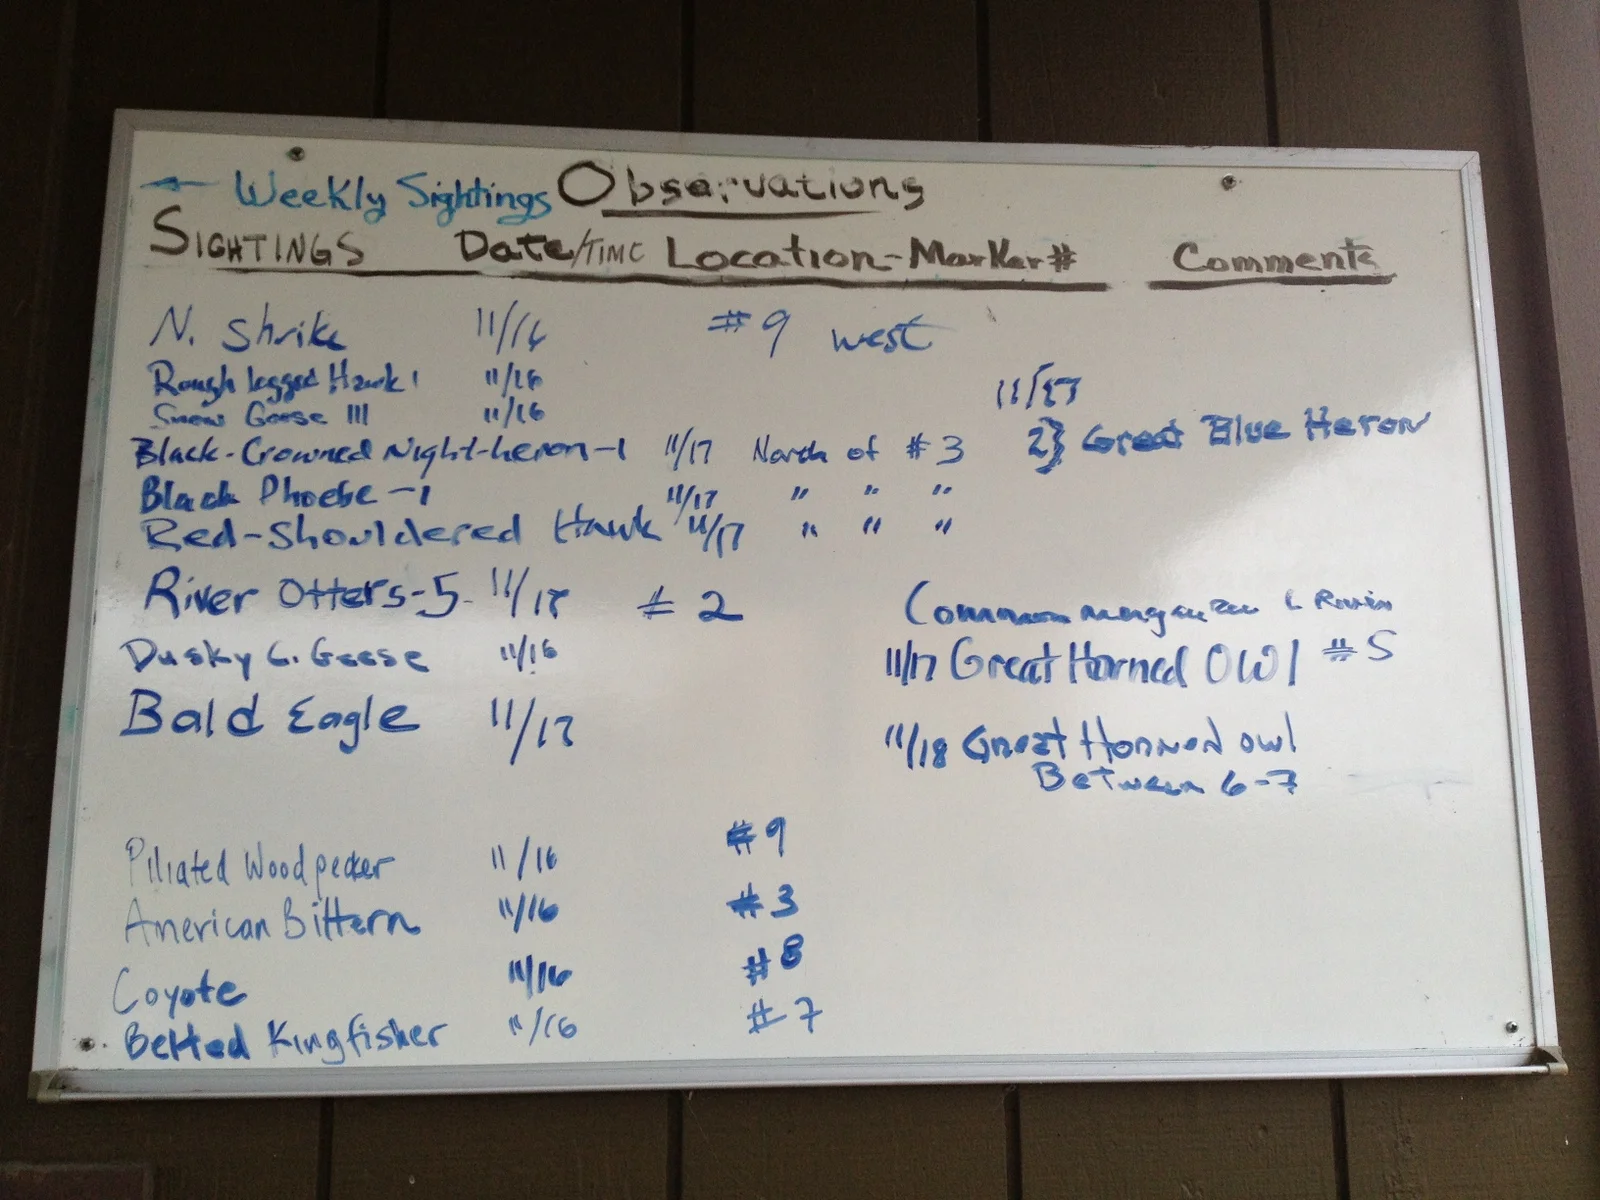 ← Weekly Sightings Observations
SIGHTINGS Date/TIME Location-Marker# Comments
N. Shrike 11/16 #9 west
Rough legged Hawk 1 11/16
Snow Goose III 11/16
11/17
2} Great Blue Heron
Black-Crowned Night-heron-1 11/17 North of #3
Black Phoebe-1 11/17 " " "
Red-Shouldered Hawk 11/17 " " "
River Otters-5 11/17 #2
Common merganzer
Dusky C. Geese 11/16
11/17 Great Horned Owl #5
Bald Eagle 11/17
11/18 Great Horned owl
Between 6-7
Piliated Woodpecker 11/16 #9
American Bittern 11/16 #3
Coyote 11/16 #8
Belted Kingfisher 11/16 #7